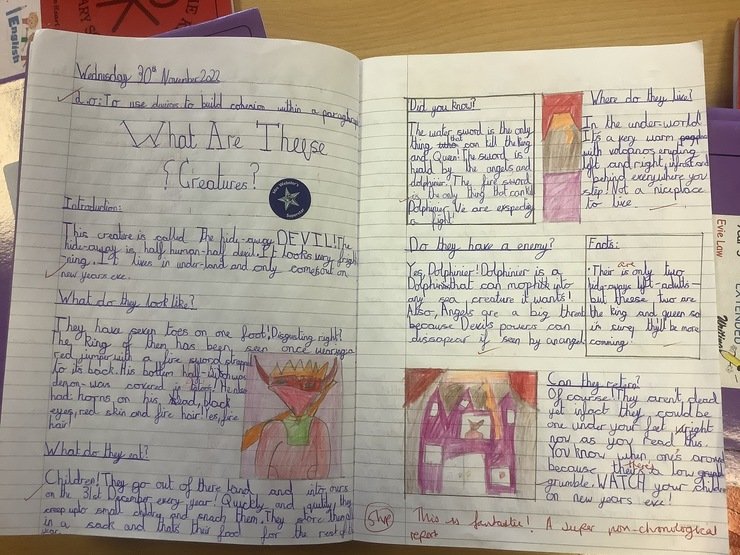 Wednesday 30th November 2022
L.O: To use devices to build cohesion within a paragraph
What Are Theyse
Creatures?
Introduction:
This creature is called The hide-away DEVIL! The
hide-away is half human-half devil. It looks very frigh
-ning. It lives in under-land and only comes out on
new years eve.
What do they look like?
They have seven toes on one foot! Disgusting right?
The King of them has been seen once wearing a
red jumper with a fire sword strapped
to its back. His bottom half - which was
demon - was covered in blood! He also
had horns, on his head, black
eyes, red skin and fire hair! Yes, fire
hair!
What do they eat?
Children! They go out of there land and into ours
on the 31st December every year! Quickly and quietly they
creep upto small children and snach them. They store them all
in a sack and thats their food for the rest of the
year.
Did you know?
The water sword is the only
thing that can kill the King
and Queen! The sword is
heald by the angels and
dolphinier. The fire sword
is the only thing that can kill
Dolphinier. We are exspecting
a fight!
Where do they live?
In the under-world!
It's a very warm
with volcanos erupting
left and right, infront and
behind everywhere you
step! Not a nice place
to live.
Do they have a enemy?
Yes, Dolphinier! Dolphinier is a
Dolphin that can mophit into
any sea creature it wants!
Also, Angels are a big threat
because Devils powers can
dissapear if seen by an angel.
Facts:
are
• Their is only two
hide-aways left - adults -
but theese two are
the King and queen so
is surey they'll be more
comming.
Can they retire?
Of course! They aren't dead
yet infact they could be
one under your feet wright
now as you read this.
You know when one's around
because there's a low grumble
grumble. WATCH your children
on new years eve!
5hp
This is fantastic! A super non-chronological
report
English
Evie Law
EXTENDED
Writing